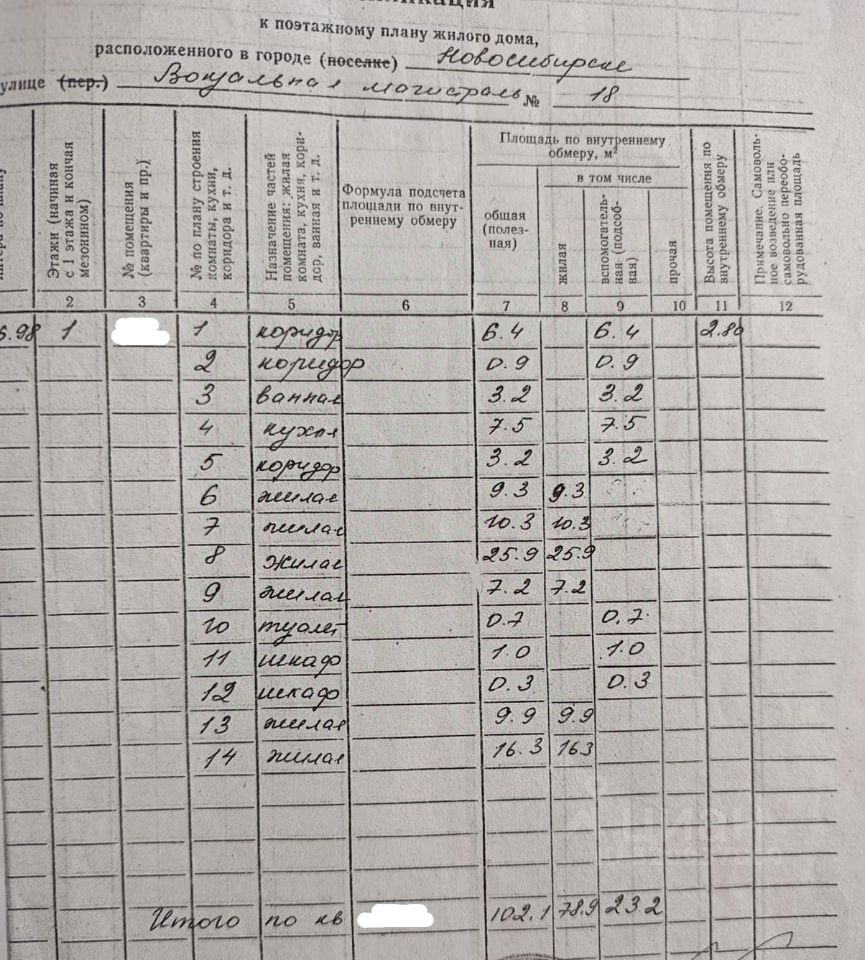 к поэтажному плану жилого дома,
расположенного в городе (поселке) Новосибирске
улице (пер.) Вокзальная магистраль № 18
Этажи (начиная с 1 этажа и кончая мезонином)
№ помещения (квартиры и пр.)
№ по плану строения комнаты, кухни, коридора и т. д.
Назначение частей помещения: жилая комната, кухня, коридор, ванная и т. д.
Формула подсчета площади по внутреннему обмеру
Площадь по внутреннему обмеру, м²
в том числе
общая (полезная)
жилая
вспомогательная (подсобная)
прочая
Высота помещения по внутреннему обмеру
Примечание. Самовольное возведение или самовольно переоборудованная площадь
2 3 4 5 6 7 8 9 10 11 12
6.98 1 1 коридор 6.4 6.4 2.80
2 коридор 0.9 0.9
3 ванная 3.2 3.2
4 кухня 7.5 7.5
5 коридор 3.2 3.2
6 жилая 9.3 9.3
7 жилая 10.3 10.3
8 жилая 25.9 25.9
9 жилая 7.2 7.2
10 туалет 0.7 0.7
11 шкаф 1.0 1.0
12 шкаф 0.3 0.3
13 жилая 9.9 9.9
14 жилая 16.3 163
Итого по кв 102.1 78.9 23.2